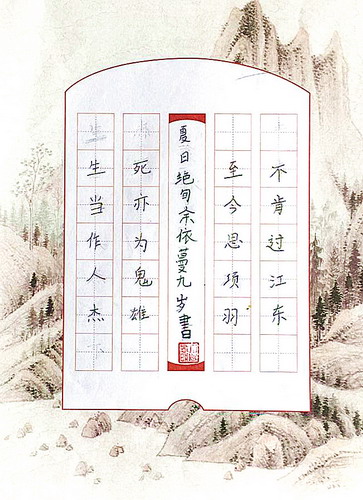 生当作人杰
死亦为鬼雄
夏日绝句余依蔓九岁書
至今思项羽
不肯过江东